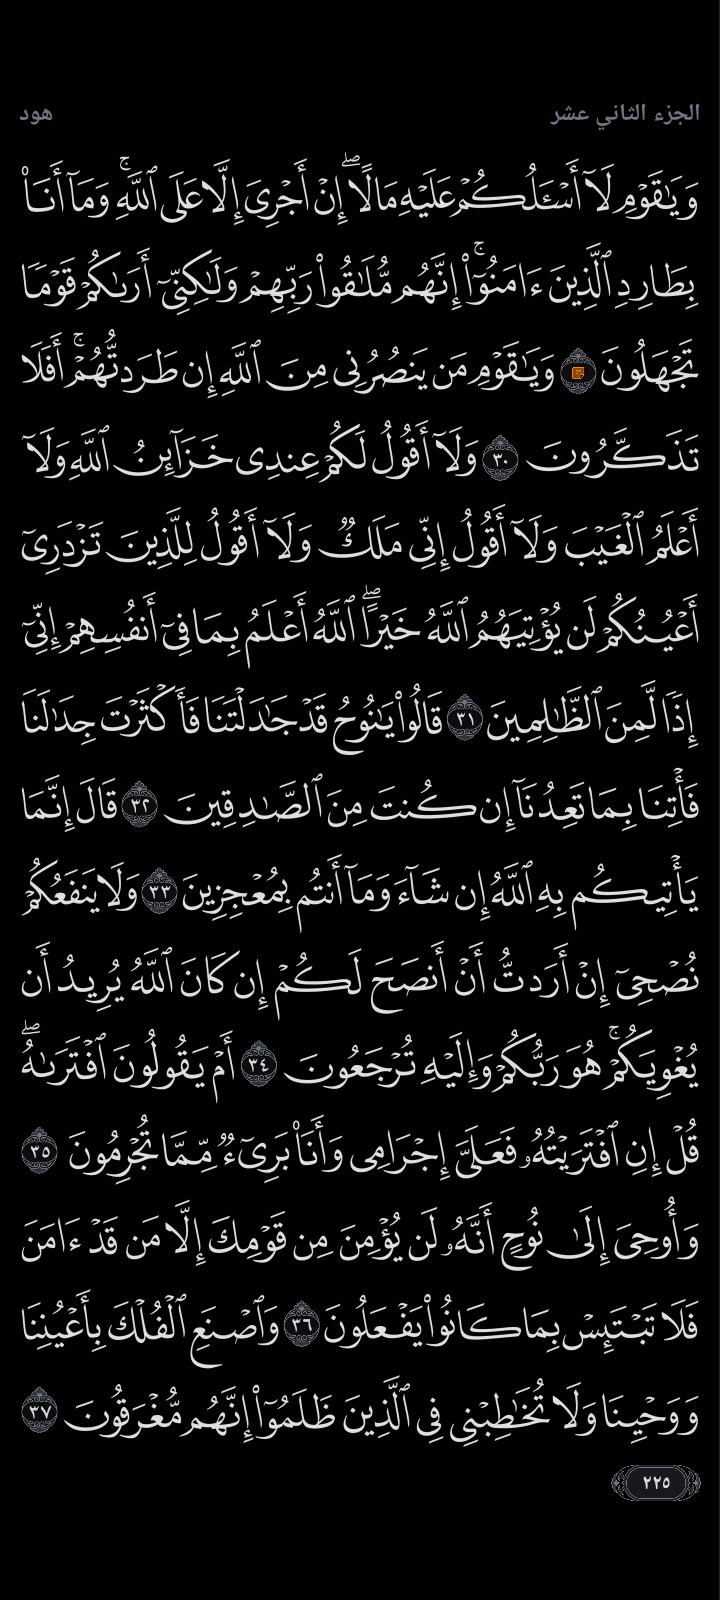 الجزء الثاني عشر
هود
وَيَٰقَوْمِ لَآ أَسْـَٔلُكُمْ عَلَيْهِ مَالًا ۖ إِنْ أَجْرِىَ إِلَّا عَلَى ٱللَّهِ ۚ وَمَآ أَنَا۠
بِطَارِدِ ٱلَّذِينَ ءَامَنُوٓا۟ ۚ إِنَّهُم مُّلَٰقُوا۟ رَبِّهِمْ وَلَٰكِنِّىٓ أَرَىٰكُمْ قَوْمًا
تَجْهَلُونَ وَيَٰقَوْمِ مَن يَنصُرُنِى مِنَ ٱللَّهِ إِن طَرَدتُّهُمْ ۚ أَفَلَا
تَذَكَّرُونَ ٣٠ وَلَآ أَقُولُ لَكُمْ عِندِى خَزَآئِنُ ٱللَّهِ وَلَآ
أَعْلَمُ ٱلْغَيْبَ وَلَآ أَقُولُ إِنِّى مَلَكٌ وَلَآ أَقُولُ لِلَّذِينَ تَزْدَرِىٓ
أَعْيُنُكُمْ لَن يُؤْتِيَهُمُ ٱللَّهُ خَيْرًا ۖ ٱللَّهُ أَعْلَمُ بِمَا فِىٓ أَنفُسِهِمْ إِنِّىٓ
إِذًا لَّمِنَ ٱلظَّٰلِمِينَ ٣١ قَالُوا۟ يَٰنُوحُ قَدْ جَٰدَلْتَنَا فَأَكْثَرْتَ جِدَٰلَنَا
فَأْتِنَا بِمَا تَعِدُنَآ إِن كُنتَ مِنَ ٱلصَّٰدِقِينَ ٣٢ قَالَ إِنَّمَا
يَأْتِيكُم بِهِ ٱللَّهُ إِن شَآءَ وَمَآ أَنتُم بِمُعْجِزِينَ ٣٣ وَلَا يَنفَعُكُمْ
نُصْحِىٓ إِنْ أَرَدتُّ أَنْ أَنصَحَ لَكُمْ إِن كَانَ ٱللَّهُ يُرِيدُ أَن
يُغْوِيَكُمْ ۚ هُوَ رَبُّكُمْ وَإِلَيْهِ تُرْجَعُونَ ٣٤ أَمْ يَقُولُونَ ٱفْتَرَىٰهُ ۖ
قُلْ إِنِ ٱفْتَرَيْتُهُۥ فَعَلَىَّ إِجْرَامِى وَأَنَا۠ بَرِىٓءٌ مِّمَّا تُجْرِمُونَ ٣٥
وَأُوحِىَ إِلَىٰ نُوحٍ أَنَّهُۥ لَن يُؤْمِنَ مِن قَوْمِكَ إِلَّا مَن قَدْ ءَامَنَ
فَلَا تَبْتَئِسْ بِمَا كَانُوا۟ يَفْعَلُونَ ٣٦ وَٱصْنَعِ ٱلْفُلْكَ بِأَعْيُنِنَا
وَوَحْيِنَا وَلَا تُخَٰطِبْنِى فِى ٱلَّذِينَ ظَلَمُوٓا۟ إِنَّهُم مُّغْرَقُونَ ٣٧
٢٢٥